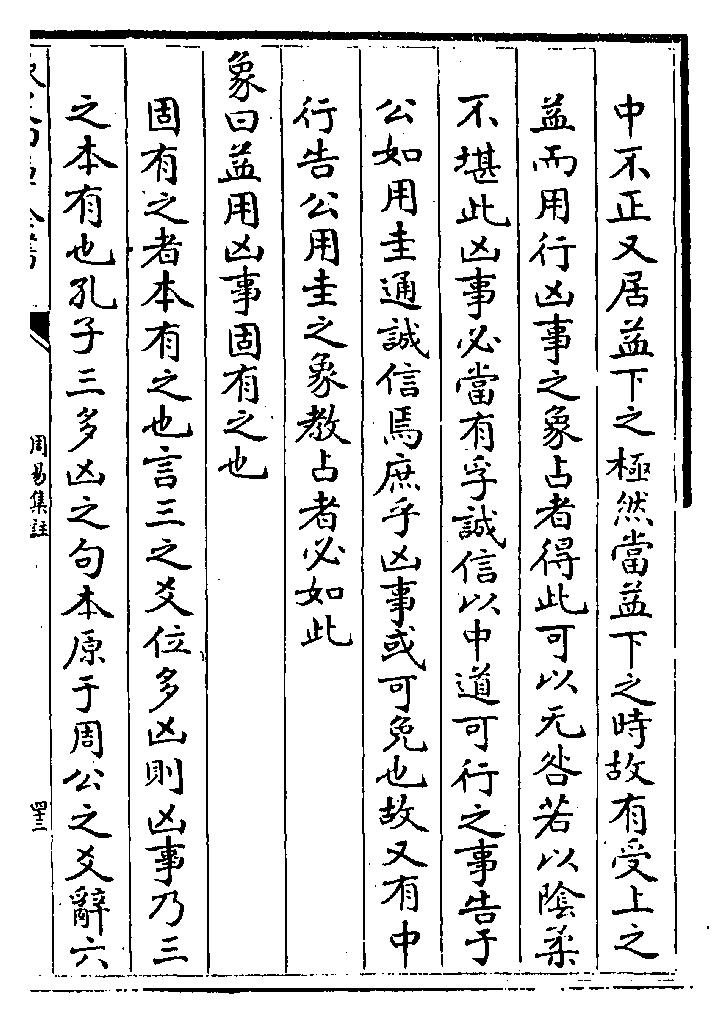 中不正又居益下之極然當益下之時故有受上之
益而用行凶事之象占者得此可以无咎若以陰柔
不堪此凶事必當有孚誠信以中道可行之事告于
公如用圭通誠信焉庶乎凶事或可免也故又有中
行告公用圭之象教占者必如此
象曰益用凶事固有之也
固有之者本有之也言三之爻位多凶則凶事乃三
之本有也孔子三多凶之句本原于周公之爻辭六
周易集註